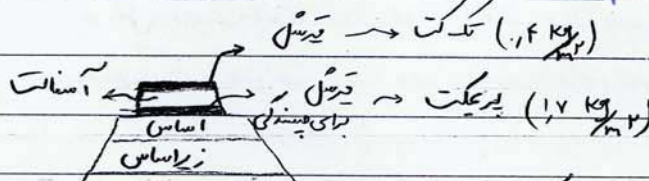 قیرمال → تک کت (۰,۴ kg/m²)
آسفالت
قیرمال → پریمکت (۱,۷ kg/m²)
برای چسبندگی
اساس
زیراساس